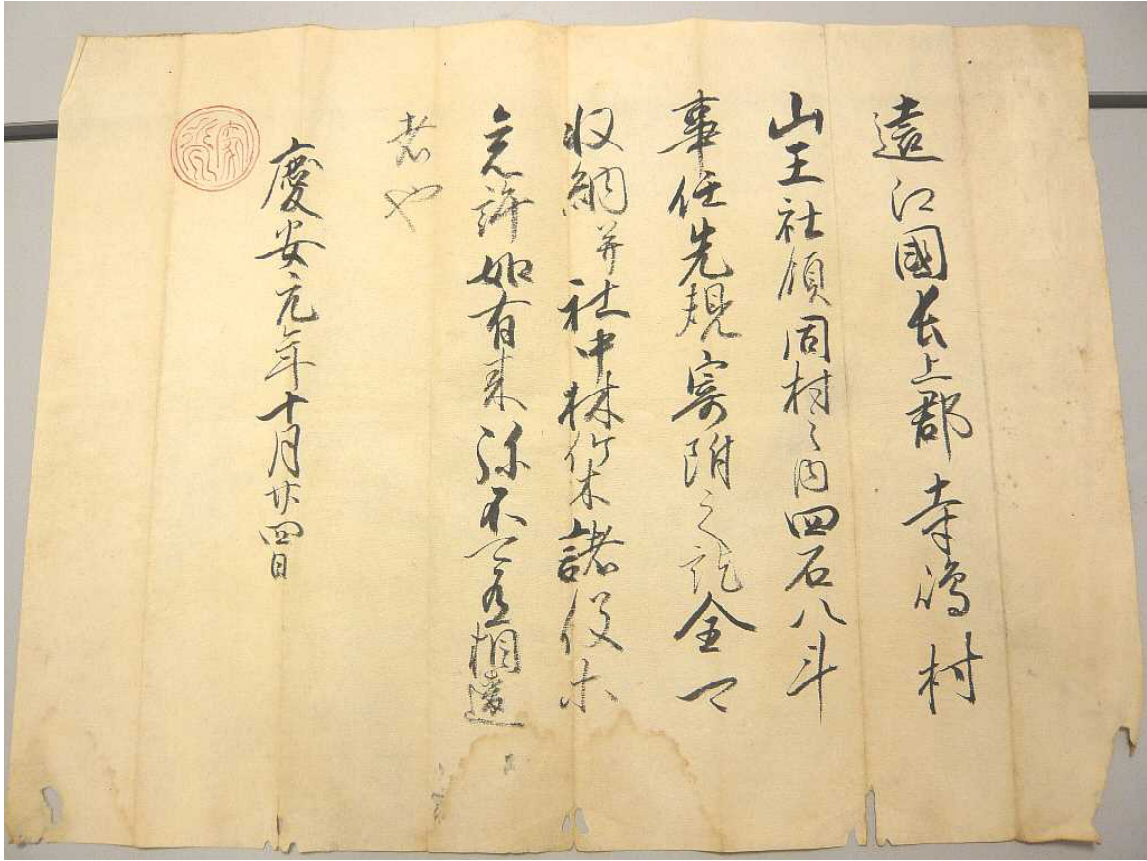 遠江國長上郡寺嶋村
山王社領同村之内四石八斗
事任先規寄附之訖全可
収納并社中林竹木諸役等
免許如有来弥不可有相違
者也
慶安元年十月廿四日
家光